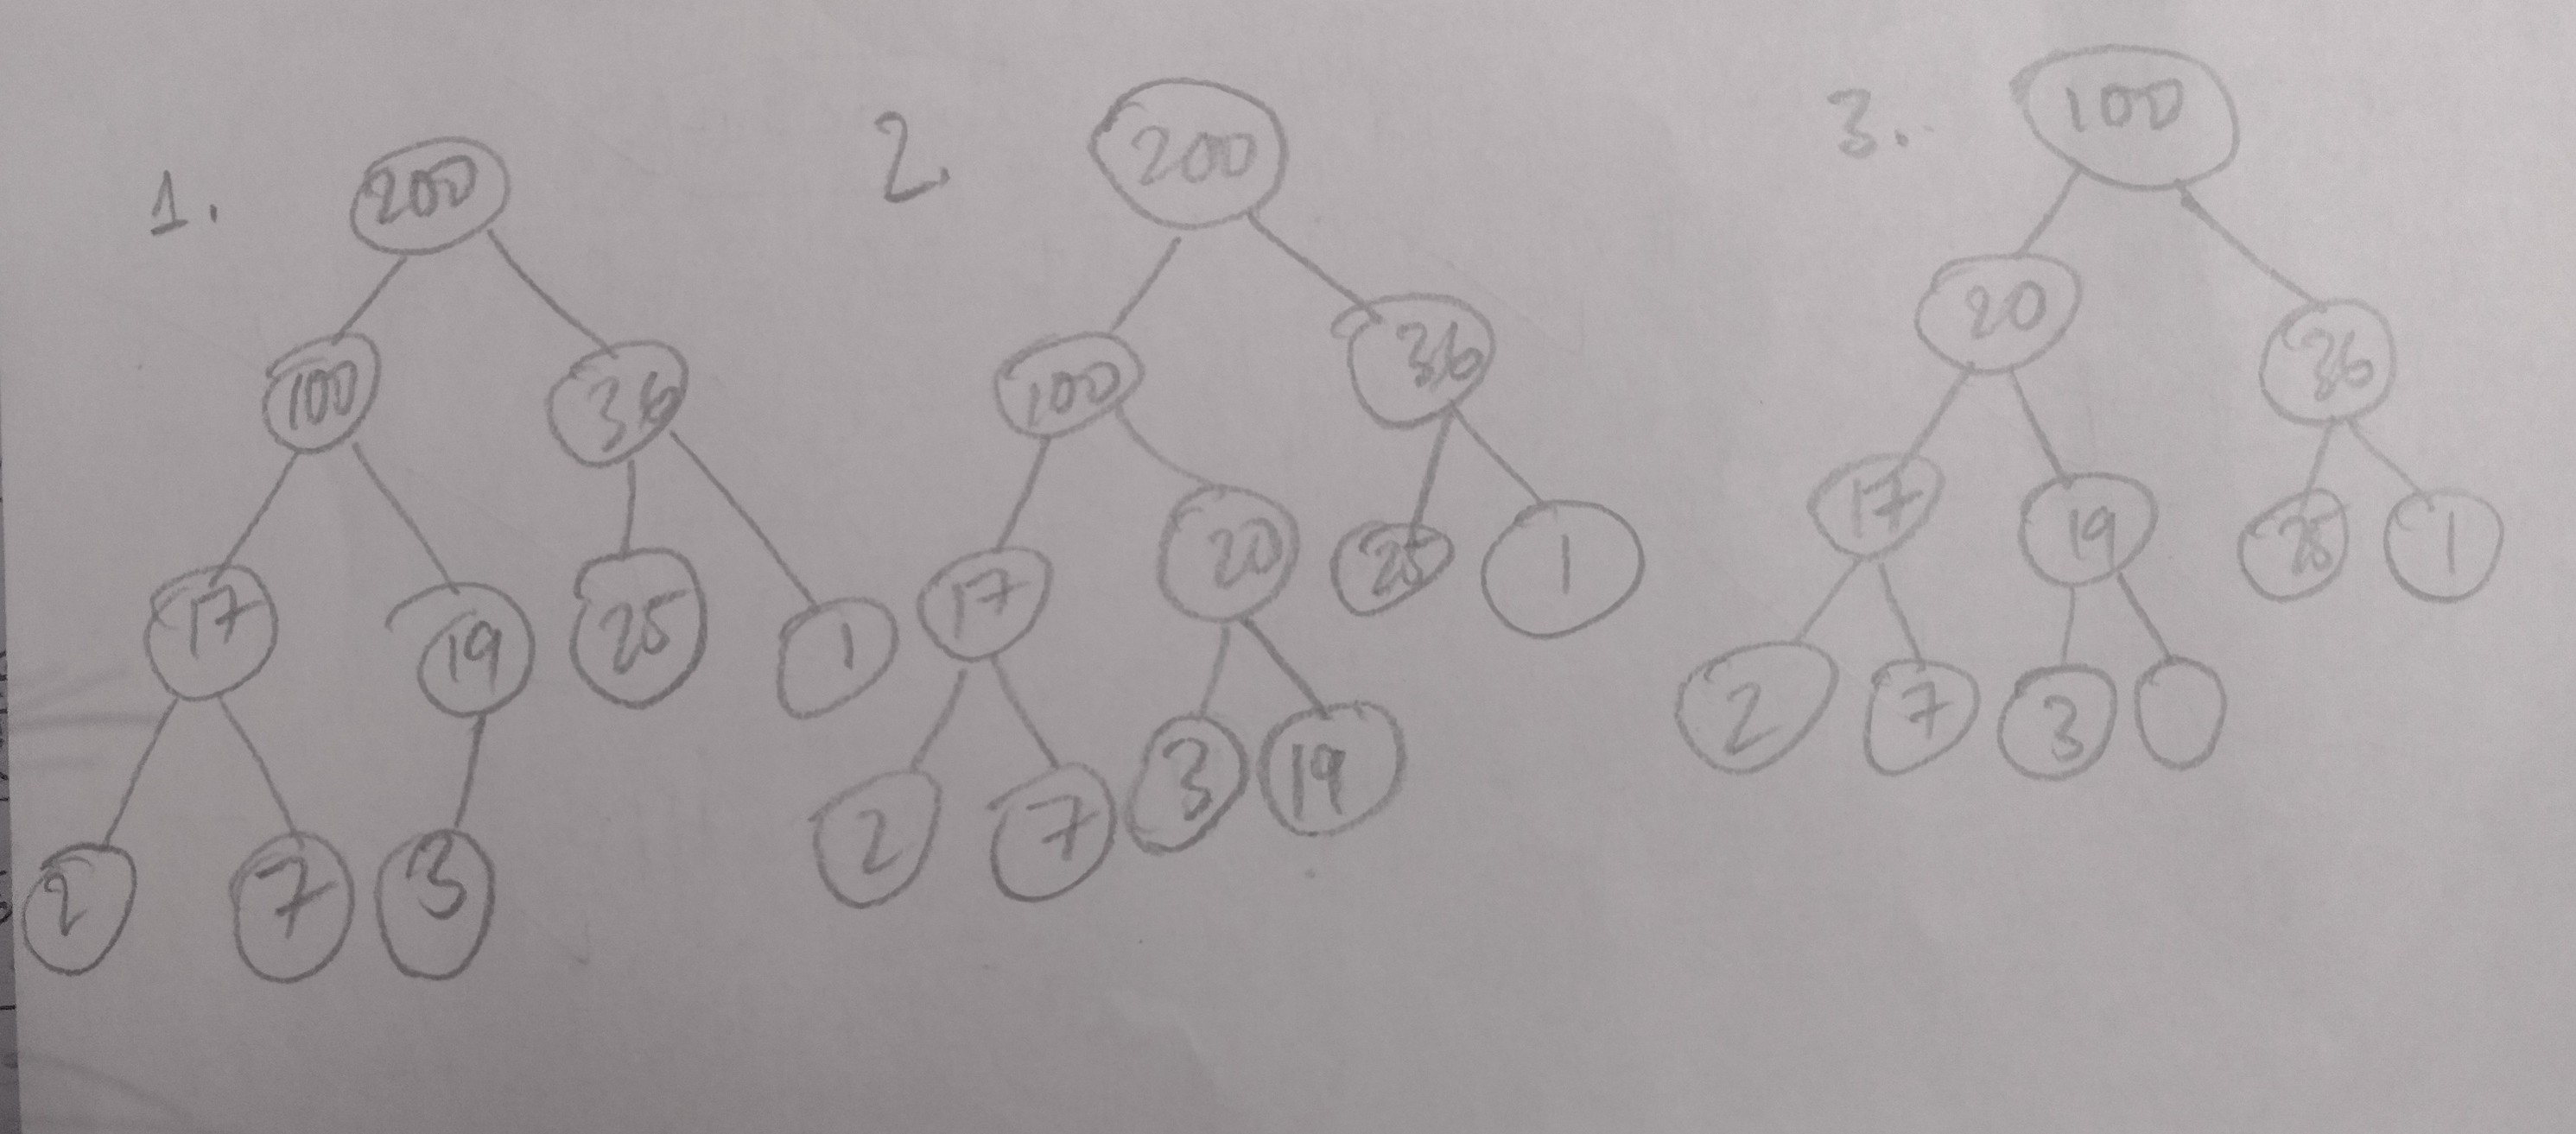 1.
200
100 36
17 19 25 1
2 7 3
2.
200
100 36
17 20 25 1
2 7 3 19
3.
100
20 36
17 19 25 1
2 7 3